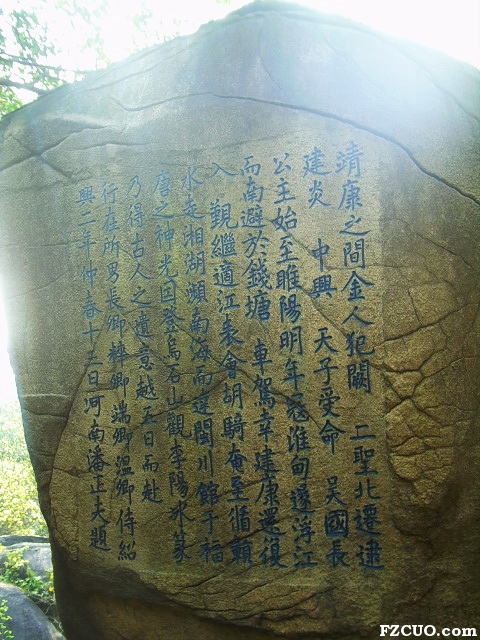 靖康之間金人犯闕 二聖北遷逮
建炎 中興 天子受命 吳國長
公主始至睢陽明年寇淮甸遂浮江
而南避於錢塘 車駕幸建康還復
入 覲繼適江表會胡騎奄至循贛
水走湘湖瀕南海而達閩川館于福
唐之神光因登烏石山觀李陽冰篆
乃得古人之遺意越五日而赴
行在所男長卿粹卿端卿溫卿侍紹
興二年仲春十二日河南潘正夫題
FZCUO.com